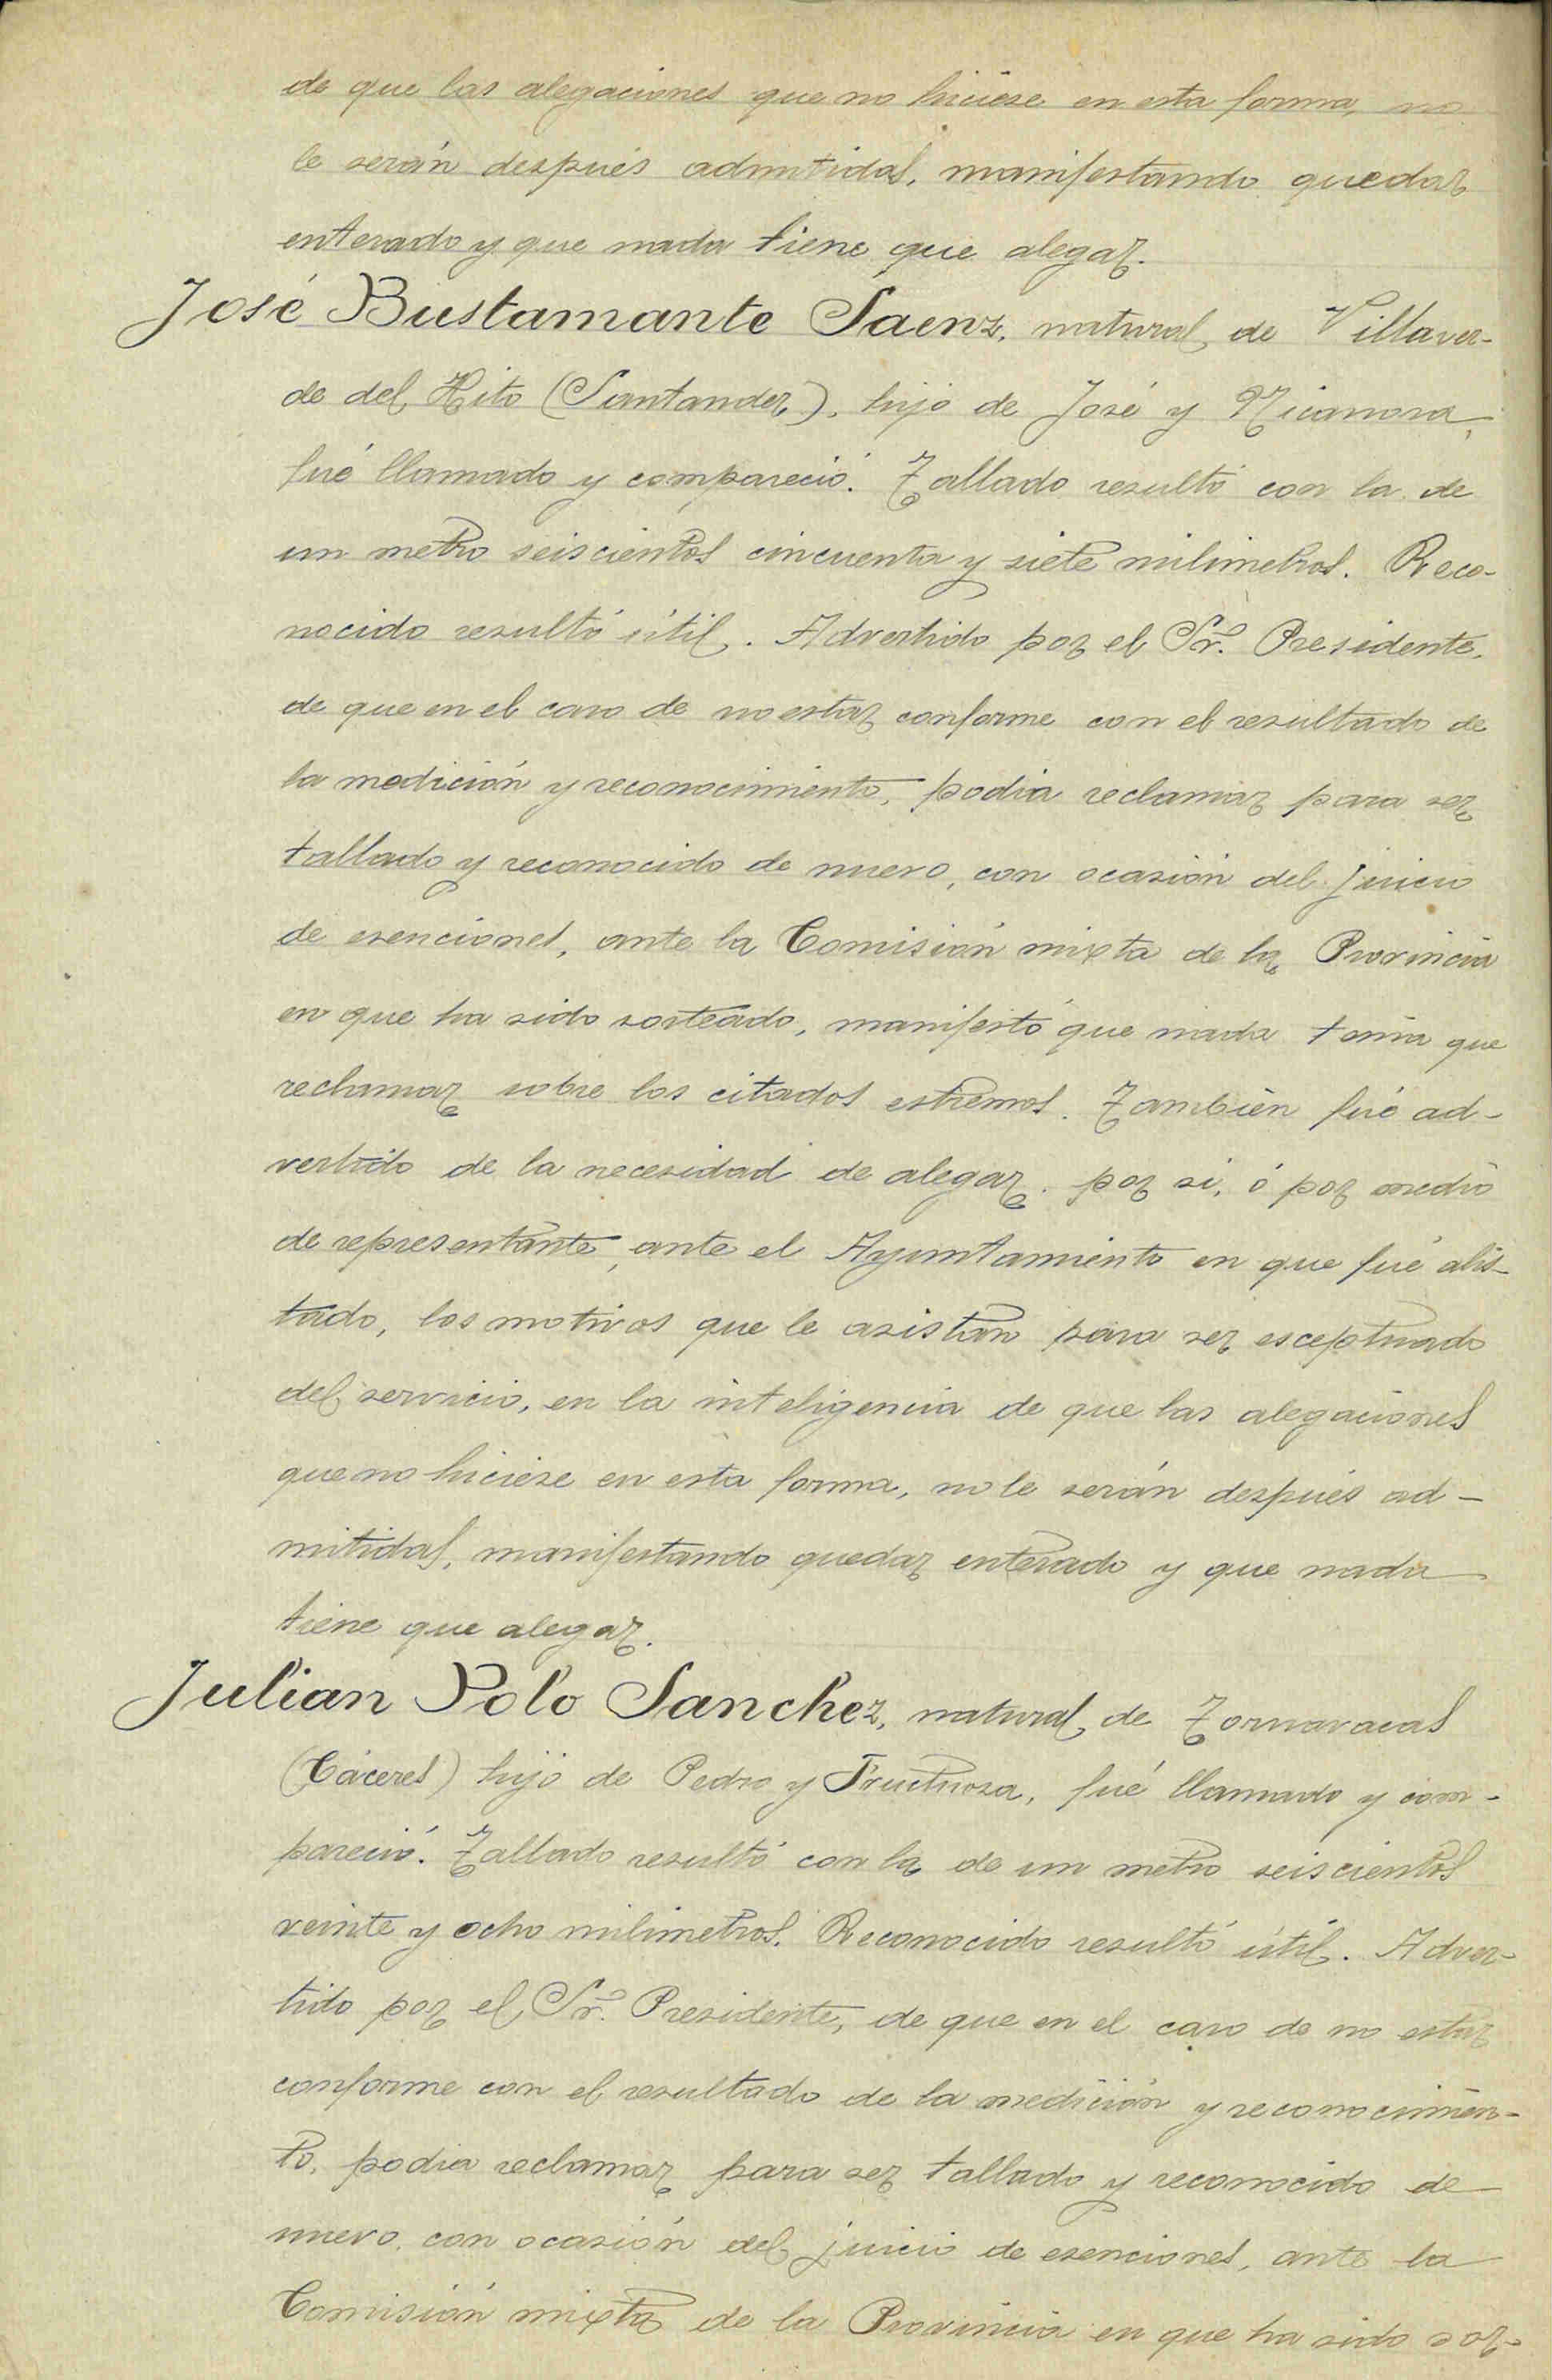 de que las alegaciones que no hiciese en esta forma, no
le serán después admitidas, manifestando quedar
enterado y que nada tiene que alegar.
José Bustamante Saenz, natural de Villaver-
de del Hito (Santander), hijo de José y Nicanora,
fué llamado y compareció. Tallado resultó con la de
un metro seiscientos cincuenta y siete milimetros. Reco-
nocido resultó útil. Advertido por el Sr. Presidente,
de que en el caso de no estar conforme con el resultado de
la medición y reconocimiento, podia reclamar para ser
tallado y reconocido de nuevo, con ocasión del juicio
de esenciones, ante la Comisión mixta de la Provincia
en que ha sido sorteado, manifestó que nada tenia que
reclamar sobre los citados estremos. También fué ad-
vertido de la necesidad de alegar, por si, ó por medio
de representante, ante el Ayuntamiento en que fué alis-
tado, los motivos que le asistan para ser esceptuado
del servicio, en la inteligencia de que las alegaciones
que no hiciese en esta forma, no le serán después ad-
mitidas, manifestando quedar enterado y que nada
tiene que alegar.
Julian Polo Sanchez, natural de Tornavacas
(Cáceres) hijo de Pedro y Fructuosa, fué llamado y com-
pareció. Tallado resultó con la de un metro seiscientos
veinte y ocho milimetros. Reconocido resultó útil. Adver-
tido por el Sr. Presidente, de que en el caso de no estar
conforme con el resultado de la medición y reconocimien-
to, podia reclamar para ser tallado y reconocido de
nuevo, con ocasión del juicio de esenciones, ante la
Comisión mixta de la Provincia en que ha sido sor-